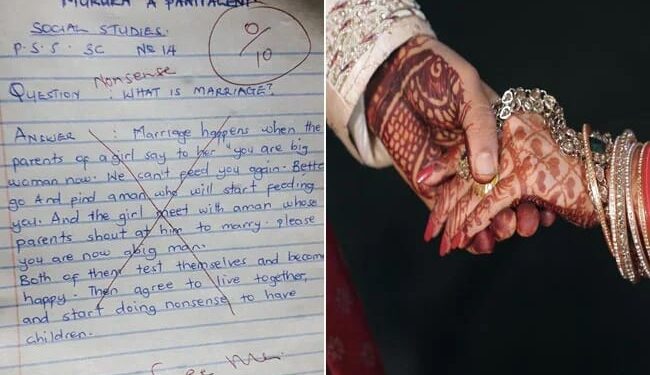 SOCIAL STUDIES.
P.S.S. SC No 14
0
10
Nonsense
QUESTION : WHAT IS MARRIAGE?
ANSWER : Marriage happens when the
parents of a girl say to her "you are big
woman now. We can't feed you again. Bette
go And find aman who will start feeding
you. And the girl meet with aman whose
parents shout at him to marry. please
you are now abig man.
Both of them test themselves and become
happy. Then agree to live together,
and start doing nonsense to have
children.
See Me.